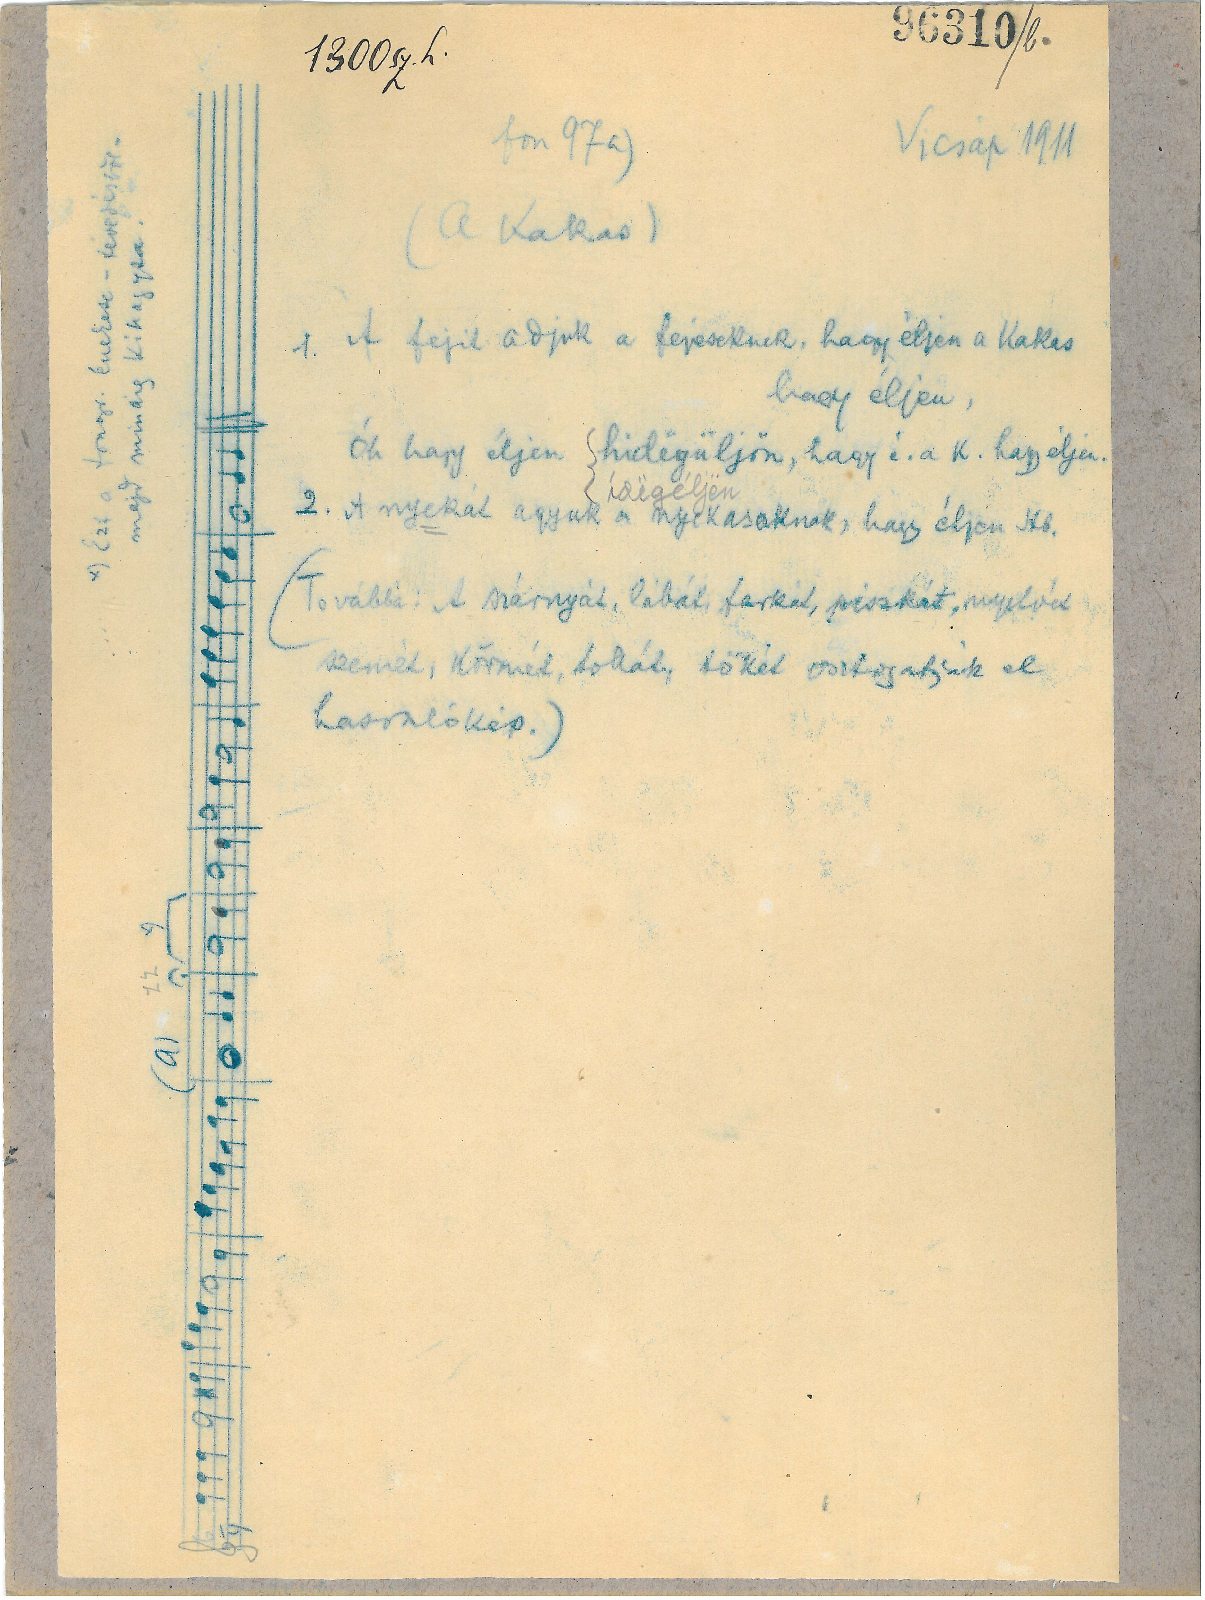 96310/b.
1300 sz. h.
fon 97a)
Vicsáp 1911
(A Kakas)
1. A fejit adjuk a fejeseknek, hagy éljen a Kakas
hagy éljen,
Óh hagy éljen { hidëgüljön, hagy é. a K. hagy éljen.
{ idëgéljën
2. A nyekát agyuk a nyekasoknak, hagy éljen stb.
(Továbbá: A szárnyát, lábát, farkát, piszkát, nyelvét
szemét, körmét, tokát, tökét osztogatják el
hasonlókép.)
(a)
x) Ezt a fonogr. éneklése -
majd mindig kihagyta.